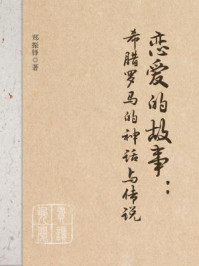 恋爱的故事：
希腊罗马的神话与传说
郑振铎
著